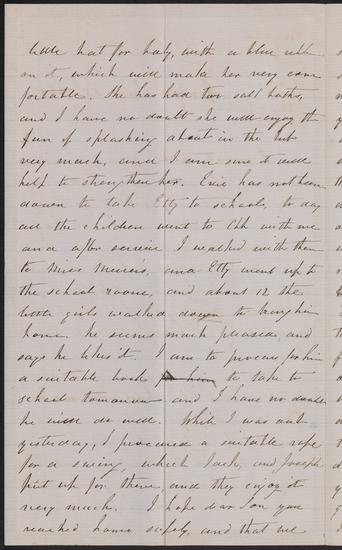 little hat for baby, with a blue
on it, which will make her very com
fortable. She has had two salt baths,
and I have no doubt she will enjoy the
fun of splashing about in the tub
very much, and I am sure it will
help to strengthen her. Evie has not been
down to take Etty to school, to day
all the children went to Chh with me
and after service I walked with them
to Miss and Etty went up to
the school room, and about 12 the
little girls walked down to bring him
home he seems much pleased, and
says he likes it. I am to procure for him
a suitable book for him to take to
school tomorrow and I have no doubt
he will do well. While I was out
yesterday, I procured a suitable rope
for a swing, which Jack, and Joseph
put up for them, and they enjoy it
very much. I hope dear Son you
reached home safely, and that we